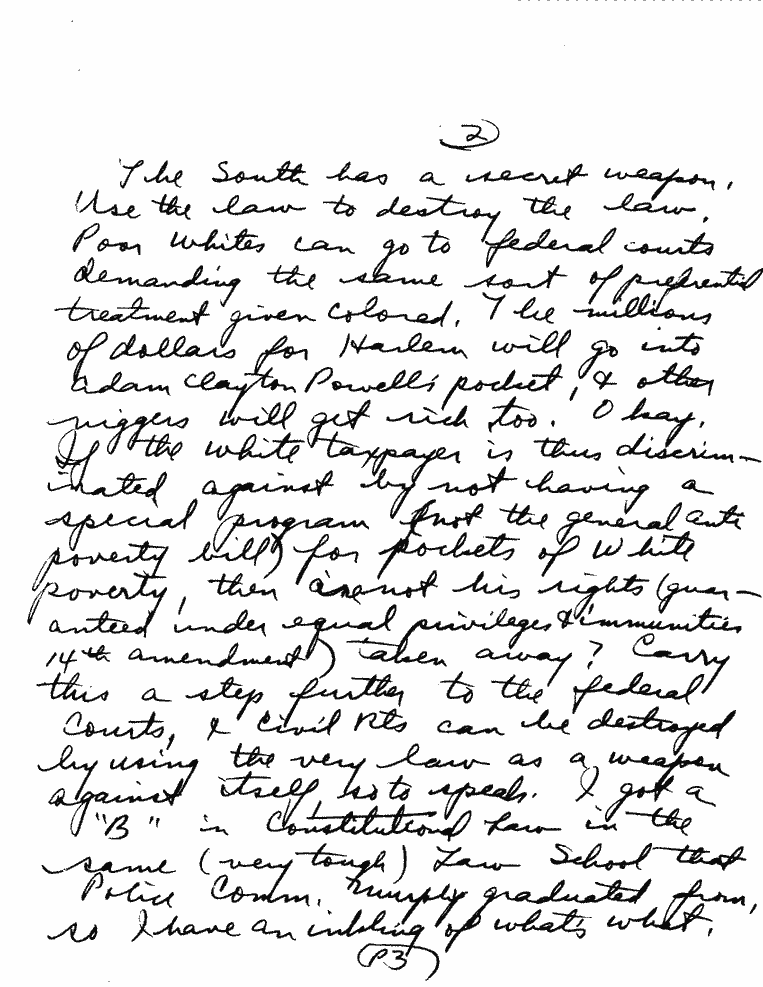 2
The South has a secret weapon.
Use the law to destroy the law.
Poor Whites can go to federal courts
demanding the same sort of preferential
treatment given colored. The millions
of dollars for Harlem will go into
Adam Clayton Powell's pocket, & other
niggers will get rich too. Okay.
If the white taxpayer is thus discrim-
inated against by not having a
special program (not the general anti
poverty bill) for pockets of White
poverty, then are not his rights (guar-
anteed under equal privileges & immunities
14th amendment) taken away? Carry
this a step further to the federal
Courts, & Civil Rts can be destroyed
by using the very law as a weapon
against itself, so to speak. I got a
"B" in Constitutional Law in the
same (very tough) Law School that
Police Comm. Murphy graduated from,
so I have an inkling of whats what.
(P3)